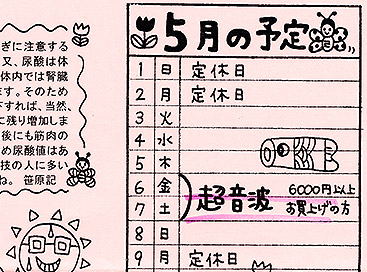 ぎに注意する
又、尿酸は体
体内では腎臓
ます。そのため
下すれば、当然、
に残り増加しま
後にも筋肉の
め尿酸値はあ
技の人に多い
ね。 笹原記
5月の予定
1 日 定休日
2 月 定休日
3 火
4 水
5 木
6 金
7 土
超音波 6000円以上
お買上げの方
8 日
9 月 定休日